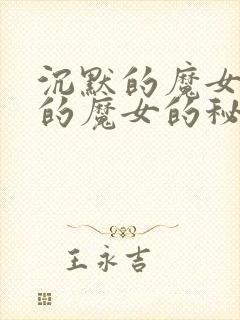 沉默的魔女
的魔女的秘
王永吉